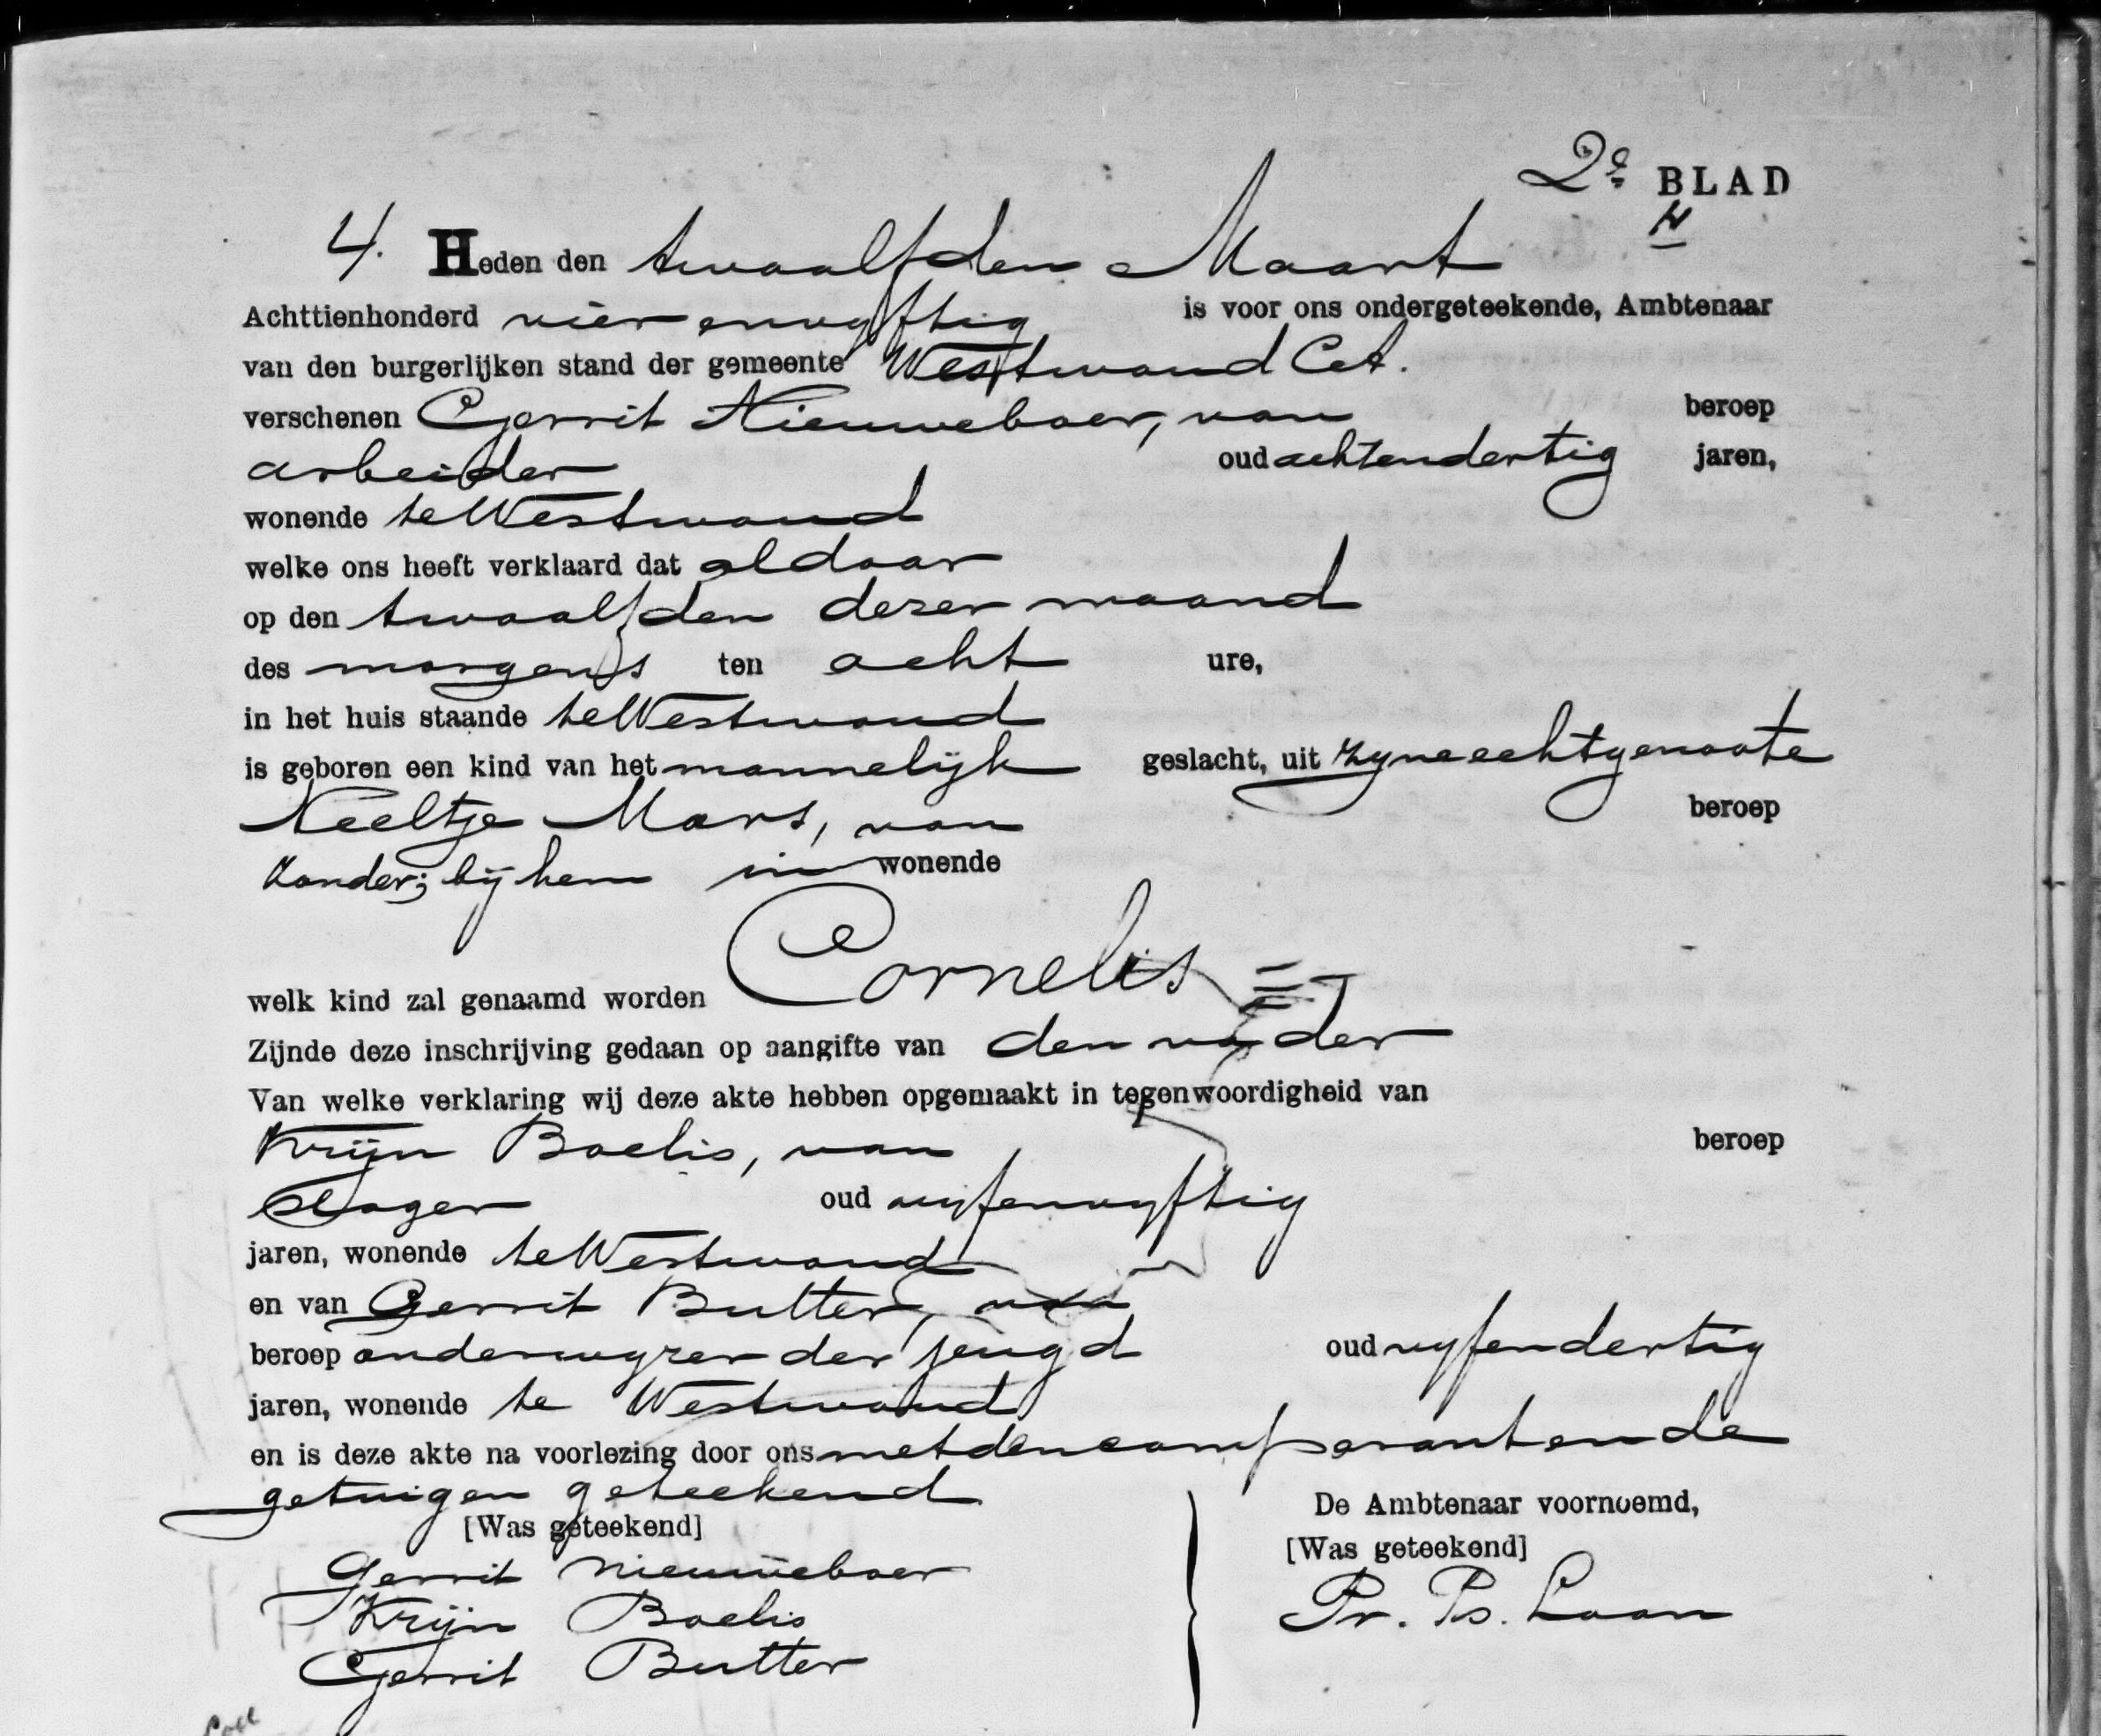 2e BLAD
4. Heden den twaalfden Maart
Achttienhonderd vier envyftig is voor ons ondergeteekende, Ambtenaar
van den burgerlijken stand der gemeente Westwoud Ca.
verschenen Gerrit Nieuweboer, van beroep
arbeider oud achtendertig jaren,
wonende te Westwoud
welke ons heeft verklaard dat aldaar
op den twaalfden dezer maand
des morgens ten acht ure,
in het huis staande te Westwoud
is geboren een kind van het mannelijk geslacht, uit zyne echtgenoote
Neeltje Mars, van beroep
zonder; bij hem in wonende
welk kind zal genaamd worden Cornelis
Zijnde deze inschrijving gedaan op aangifte van den vader
Van welke verklaring wij deze akte hebben opgemaakt in tegenwoordigheid van
Krijn Boelis, van beroep
slager oud vyfenvyftig
jaren, wonende te Westwoud
en van Gerrit Butter, van
beroep onderwyzer der jeugd oud vyfendertig
jaren, wonende te Westwoud
en is deze akte na voorlezing door ons met den comparant en de
getuigen geteekend
[Was geteekend] De Ambtenaar voornoemd,
Gerrit Nieuweboer [Was geteekend]
Krijn Boelis Pr. Ps. Laan
Gerrit Butter